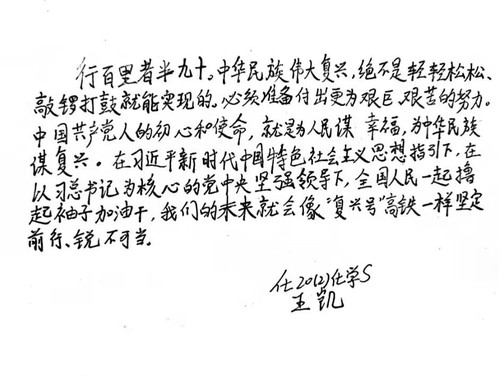 行百里者半九十。中华民族伟大复兴,绝不是轻轻松松、
敲锣打鼓就能实现的。必须准备付出更为艰巨、艰苦的努力。
中国共产党人的初心和使命,就是为人民谋幸福,为中华民族
谋复兴。在习近平新时代中国特色社会主义思想指引下,在
以习总书记为核心的党中央坚强领导下,全国人民一起撸
起袖子加油干,我们的未来就会像“复兴号”高铁一样坚定
前行、锐不可当。
仕20(2)仕学S
王凯